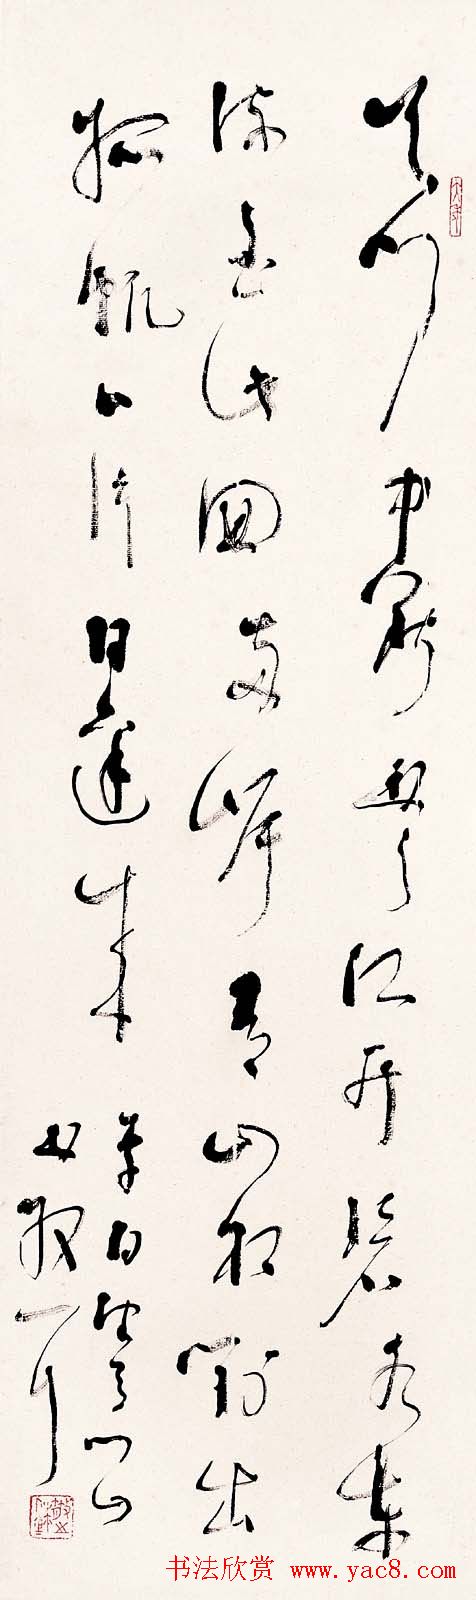 天門中斷楚江開碧水東
流至此回兩岸青山相對出
孤帆一片日邊來
李白望天門山
書 散耳
书法欣赏 www.yac8.com